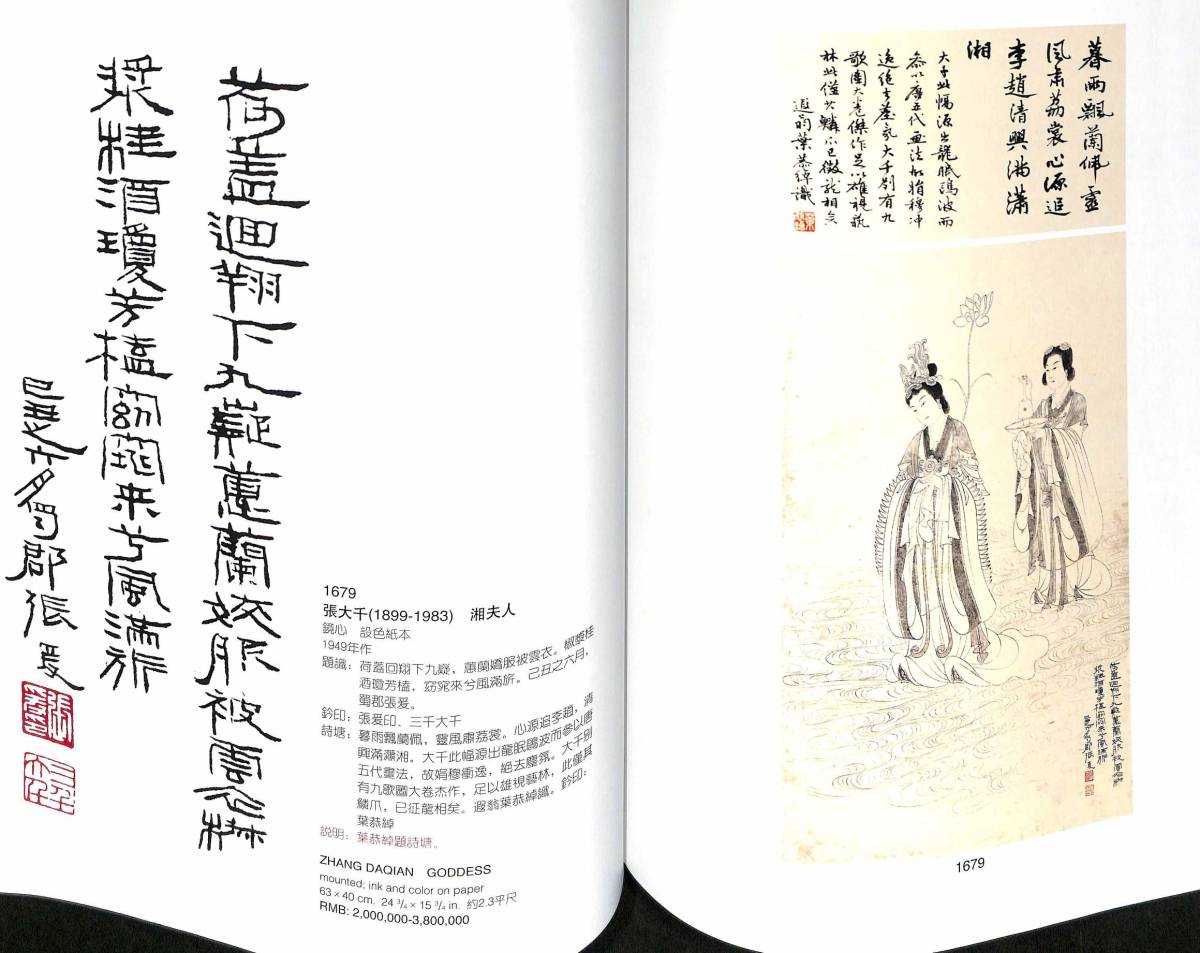 荷蓋迴翔下九嶷蕙蘭姣服被雲衣椒
漿桂酒瓊芳榼窈窕来兮風滿旂
己丑之六月蜀郡張爰
1679
張大千(1899-1983) 湘夫人
鏡心 設色紙本
1949年作
題識：荷蓋回翔下九疑，蕙蘭嬌服被雲衣。椒漿桂
酒瓊芳榼，窈窕來兮風滿旂。己丑之六月，
蜀郡張爰。
鈐印：張爰印、三千大千
詩塘：暮雨飄蘭佩，靈風肅荔裳。心源追李趙，清
興滿瀟湘。大千此幅源出龍眠鷗波而參以唐
五代畫法，故娟穆衝逸，絕去塵氛。大千別
有九歌圖大卷傑作，足以雄視藝林，此僅其
鱗爪，已征龍相矣。遐翁葉恭綽識。鈐印：
葉恭綽
説明：葉恭綽題詩塘。
ZHANG DAQIAN GODDESS
mounted; ink and color on paper
63 × 40 cm. 24 3/4 × 15 3/4 in. 約2.3平尺
RMB: 2,000,000-3,800,000
暮雨飄蘭佩靈
風肅荔裳心源追
李趙清興滿瀟
湘
大千此幅源出龍眠鷗波而
參以唐五代畫法故娟穆冲
逸絕去塵氛大千別有九
歌圖大卷傑作足以雄視藝
林此僅其鱗爪已徵龍相矣
遐翁葉恭綽識
荷蓋迴翔下九嶷蕙蘭姣服被雲衣椒
漿桂酒瓊芳榼窈窕来兮風滿旂
己丑之六月蜀郡張爰
1679